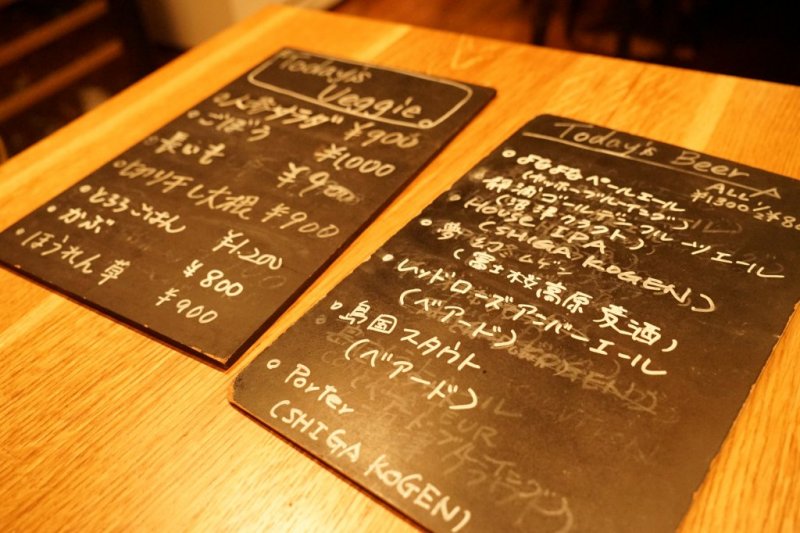 Today's
Veggie
人参サラダ ¥900
ごぼう ¥1000
長いも ¥900
切り干し大根 ¥900
とろろごはん ¥1,200
かぶ ¥800
ほうれん草 ¥900
Today's Beer
ALL
¥1300
ペールエール
ゴールデンフルーツエール
(沼津クラフト)
HOUSE IPA
(SHIGA KOGEN)
夢幻
(富士桜高原麦酒)
レッドローズアンバーエール
(ベアード)
島国スタウト
(ベアード)
Porter
(SHIGA KOGEN)